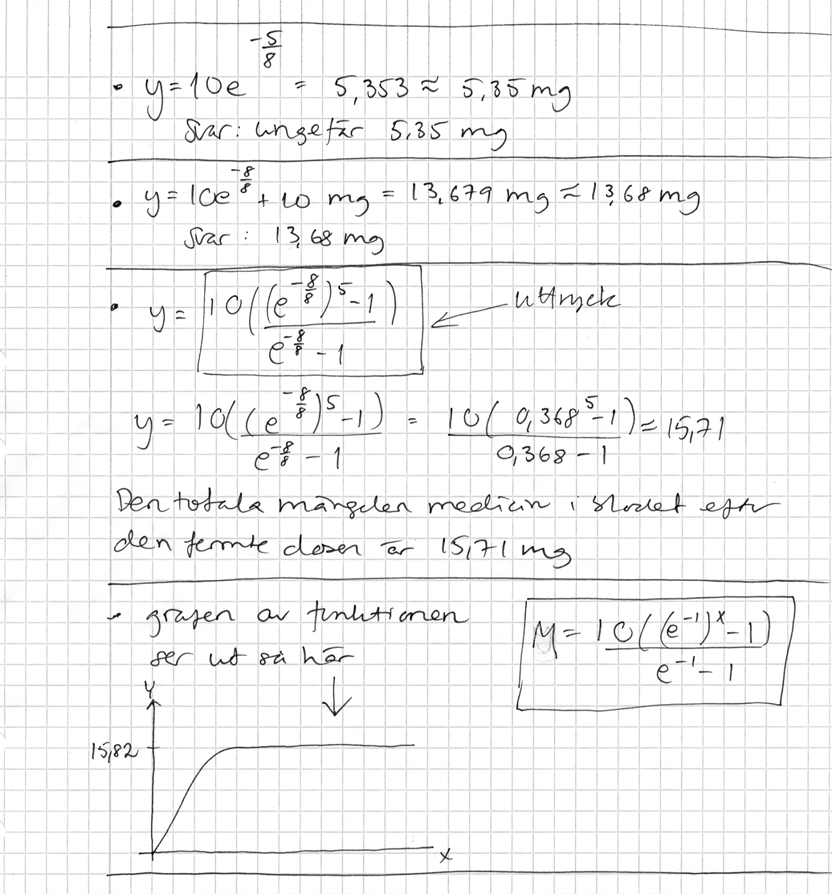 • y = 10e^(-5/8) = 5,353 ≈ 5,35 mg
Svar: ungefär 5,35 mg
• y = 10e^(-8/8) + 10 mg = 13,679 mg ≈ 13,68 mg
Svar: 13,68 mg
• y = 10((e^(-8/8))^5 - 1) / (e^(-8/8) - 1) ← uttryck
y = 10((e^(-8/8))^5 - 1) / (e^(-8/8) - 1) = 10(0,368^5 - 1) / (0,368 - 1) ≈ 15,71
Den totala mängden medicin i blodet efter
den femte dosen är 15,71 mg
• grafen av funktionen
ser ut så här
M = 10((e^(-1))^x - 1) / (e^(-1) - 1)
y
15,82
x